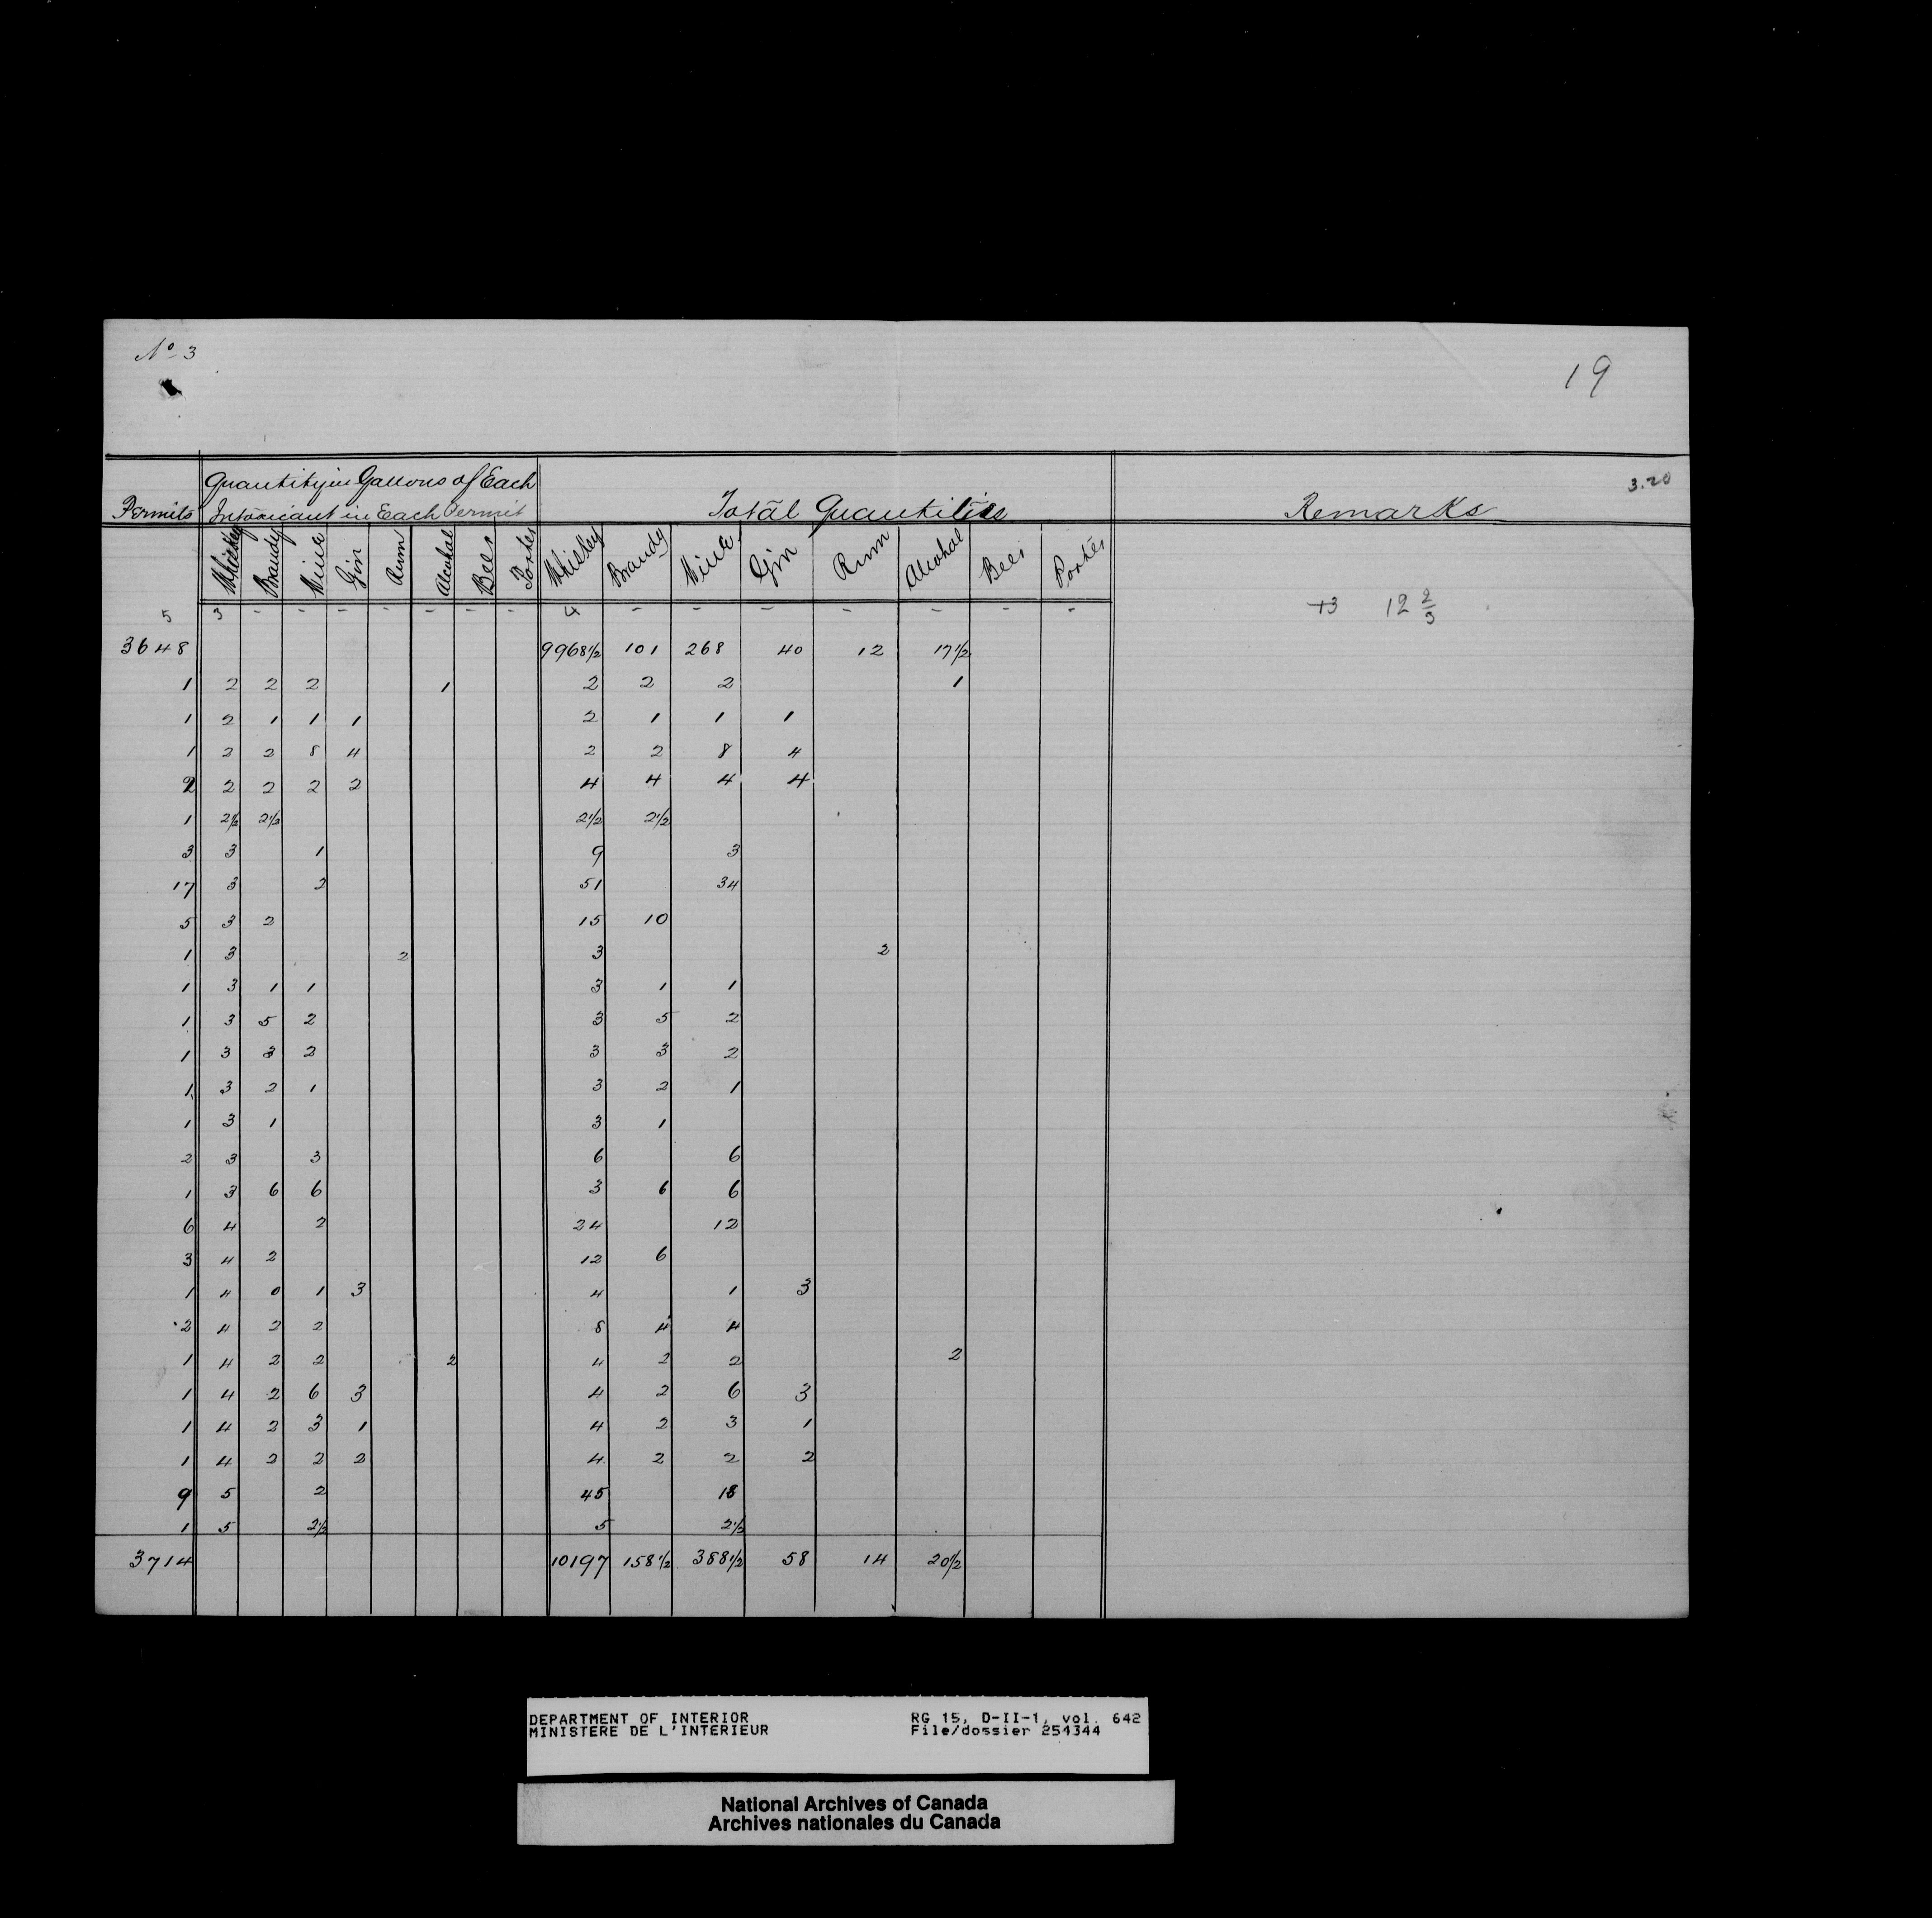 No 3
19
Permits Quantity in Gallons of Each Intoxicant in Each Permit Total Quantities Remarks 3.20
Whiskey Brandy Wine Gin Rum Alcohol Beer Porter Whiskey Brandy Wine Gin Rum Alcohol Beer Porter
5 3 - - - - - - - 4 - - - - - - - 12 2/3
3648 9968½ 101 268 40 12 17½
1 2 2 2 1 2 2 2 1
1 2 1 1 1 2 1 1 1
1 2 2 8 4 2 2 8 4
2 2 2 2 2 4 4 4 4
1 2½ 2½ 2½ 2½
3 3 1 9 3
17 3 2 51 34
5 3 2 15 10
1 3 2 3 2
1 3 1 1 3 1 1
1 3 5 2 3 5 2
1 3 3 2 3 3 2
1 3 2 1 3 2 1
1 3 1 3 1
2 3 3 6 6
1 3 6 6 3 6 6
6 4 2 24 12
3 4 2 12 6
1 4 0 1 3 4 1 3
2 4 2 2 8 4 4
1 4 2 2 2 4 2 2 2
1 4 2 6 3 4 2 6 3
1 4 2 3 1 4 2 3 1
1 4 2 2 2 4 2 2 2
9 5 2 45 18
1 5 2½ 5 2½
3714 10197 158½ 388½ 58 14 20½
DEPARTMENT OF INTERIOR RG 15, D-II-1, vol. 642
MINISTERE DE L'INTERIEUR File/dossier 254344
National Archives of Canada
Archives nationales du Canada